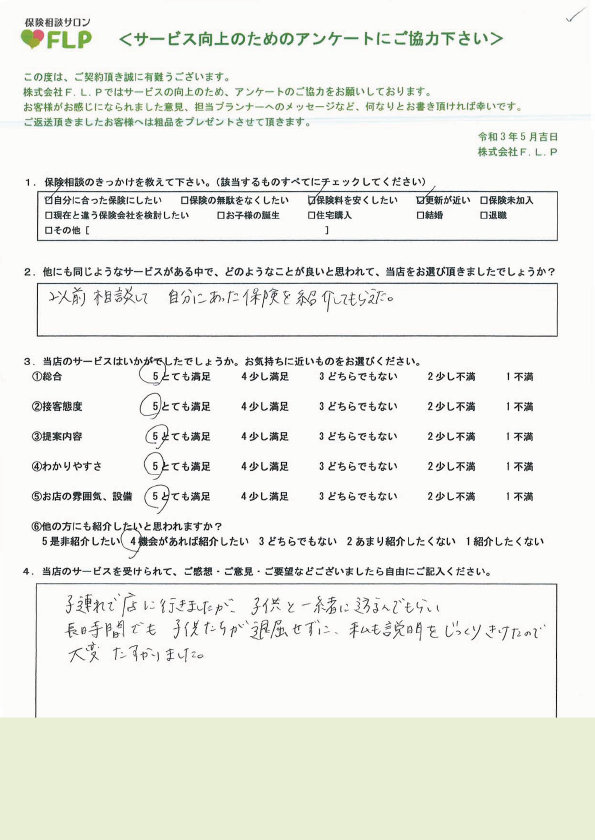 保険相談サロン
FLP
＜サービス向上のためのアンケートにご協力下さい＞
この度は、ご契約頂き誠に有難うございます。
株式会社Ｆ．Ｌ．Ｐではサービスの向上のため、アンケートのご協力をお願いしております。
お客様がお感じになられました意見、担当プランナーへのメッセージなど、何なりとお書き頂ければ幸いです。
ご返送頂きましたお客様へは粗品をプレゼントさせて頂きます。
令和３年５月吉日
株式会社Ｆ．Ｌ．Ｐ
１．保険相談のきっかけを教えて下さい。（該当するものすべてにチェックしてください）
☑自分に合った保険にしたい □保険の無駄をなくしたい ☑保険料を安くしたい ☑更新が近い □保険未加入
□現在と違う保険会社を検討したい □お子様の誕生 □住宅購入 □結婚 □退職
□その他［ ］
２．他にも同じようなサービスがある中で、どのようなことが良いと思われて、当店をお選び頂きましたでしょうか？
以前 相談して 自分にあった保険を紹介してもらえた。
３．当店のサービスはいかがでしたでしょうか。お気持ちに近いものをお選びください。
①総合 ５とても満足 ４少し満足 ３どちらでもない ２少し不満 １不満
②接客態度 ５とても満足 ４少し満足 ３どちらでもない ２少し不満 １不満
③提案内容 ５とても満足 ４少し満足 ３どちらでもない ２少し不満 １不満
④わかりやすさ ５とても満足 ４少し満足 ３どちらでもない ２少し不満 １不満
⑤お店の雰囲気、設備 ５とても満足 ４少し満足 ３どちらでもない ２少し不満 １不満
⑥他の方にも紹介したいと思われますか？
５是非紹介したい ４機会があれば紹介したい ３どちらでもない ２あまり紹介したくない １紹介したくない
４．当店のサービスを受けられて、ご感想・ご意見・ご要望などございましたら自由にご記入ください。
子連れで店に行きましたが、子供と一緒に遊んでもらい
長時間でも 子供たちが退屈せずに、私も説明をじっくりきけたので
大変 たすかりました。